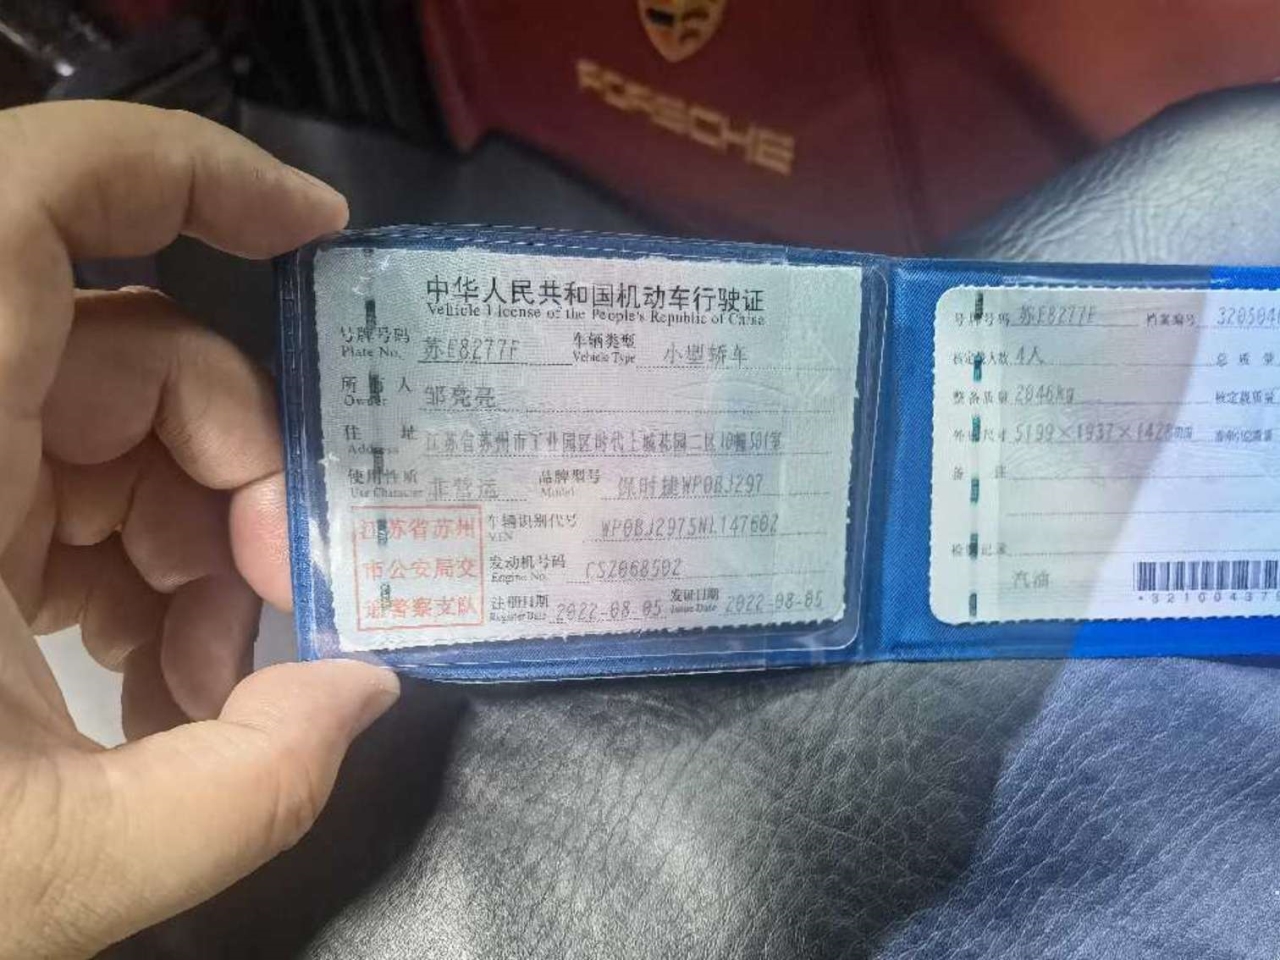 PORSCHE
中华人民共和国机动车行驶证
Vehicle License of the People's Republic of China
号牌号码 苏E8277F 车辆类型 小型轿车
Plate No. Vehicle Type
所有人 邹亮亮
Owner
住址 江苏省苏州市工业园区时代上城花园二区10幢501室
Address
使用性质 非营运 品牌型号 保时捷WP0BJ297
Use Character Model
江苏省苏州
市公安局交
通警察支队
车辆识别代号 WP0BJ2975NL147602
VIN
发动机号码 CSZ068502
Engine No.
注册日期 2022-08-05 发证日期 2022-08-05
Register Date Issue Date
号牌号码 苏E8277F 档案编号 3205040
核定载人数 4人 总质量
整备质量 2046kg 核定载质量
外廓尺寸 5199×1937×1428mm
备注
检验记录
汽油
*32100437